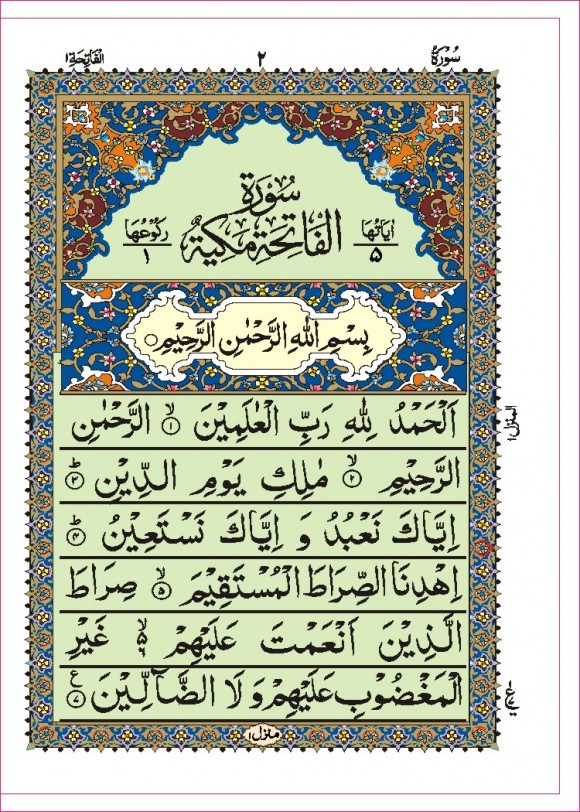 سُوْرَةُ ٢ الْفَاتِحَةِ ١
سُوْرَةُ
اٰيَاتُهَا ٥ الْفَاتِحَةِ مَكِّيَّةٌ رُكُوْعُهَا ١
بِسْمِ اللّٰهِ الرَّحْمٰنِ الرَّحِيْمِ
اَلْحَمْدُ لِلّٰهِ رَبِّ الْعٰلَمِيْنَ ۙ﴿١﴾ الرَّحْمٰنِ
الرَّحِيْمِ ۙ﴿٢﴾ مٰلِكِ يَوْمِ الدِّيْنِ ؕ﴿٣﴾
اِيَّاكَ نَعْبُدُ وَ اِيَّاكَ نَسْتَعِيْنُ ؕ﴿٤﴾
اِهْدِنَا الصِّرَاطَ الْمُسْتَقِيْمَ ۙ﴿٥﴾ صِرَاطَ
الَّذِيْنَ اَنْعَمْتَ عَلَيْهِمْ ۙ٦ غَيْرِ
الْمَغْضُوْبِ عَلَيْهِمْ وَ لَا الضَّآلِّيْنَ ع﴿٧﴾
المنزل ١
منزل ١